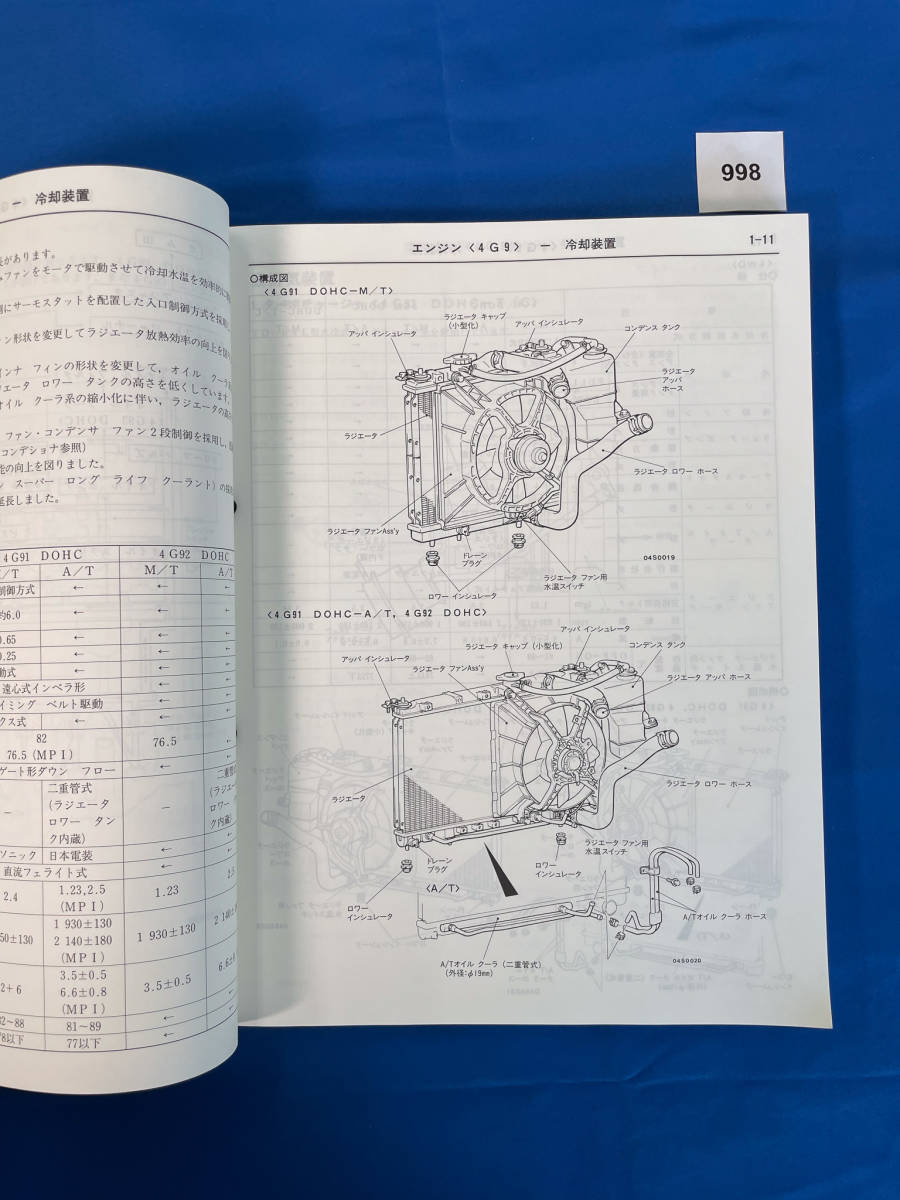 998
－ 冷却装置
長があります。
ファンをモータで駆動させて冷却水温を効率的に
側にサーモスタットを配置した入口制御方式を採用
ン形状を変更してラジエータ放熱効率の向上を図り
インナ フィンの形状を変更して，オイル クーラ
ジエータ ロワー タンクの高さを低くしています。
オイル クーラ系の縮小化に伴い，ラジエータの高
ファン・コンデンサ ファン2段制御を採用し，
コンデショナ参照)
能の向上を図りました。
ン スーパー ロング ライフ クーラント)の
延長しました。
4G91 DOHC 4G92 DOHC
/T A/T M/T A/T
制御方式 ← ← ←
約6.0 ← ← ←
0.65 ← ← ←
0.25 ← ← ←
動式 ← ← ←
遠心式インペラ形 ← ←
イミング ベルト駆動 ← ←
クス式 ← ← ←
82
76.5 (MPI) 76.5 ←
ゲート形ダウン フロー ← ←
－ 二重管式 － 二重管
(ラジエータ (ラジエ
ロワー タン ロワー
ク内蔵) ク内蔵)
ソニック 日本電装 ← ←
直流フェライト式 ← ←
2.4 1.23,2.5 1.23 2.5
(MPI)
50±130 1 930±130 1 930±130 2 140±
2 140±180
(MPI)
2+6 3.5±0.5 3.5±0.5 6.6±
6.6±0.8
(MPI)
82～88 81～89 ← ←
78以下 77以下 ← ←
エンジン〈4G9〉 － 冷却装置 1-11
○構成図
〈4G91 DOHC－M/T〉
ラジエータ キャップ
(小型化)
アッパ インシュレータ
アッパ インシュレータ
コンデンス タンク
ラジエータ
アッパ
ホース
ラジエータ
ラジエータ ロワー ホース
ラジエータ ファンAss'y
ドレーン
プラグ
04S0019
ラジエータ ファン用
水温スイッチ
ロワー インシュレータ
〈4G91 DOHC－A/T, 4G92 DOHC〉
アッパ インシュレータ
ラジエータ キャップ (小型化)
コンデンス タンク
アッパ インシュレータ
ラジエータ ファンAss'y
ラジエータ アッパ ホース
ラジエータ
ラジエータ ロワー ホース
ラジエータ ファン用
水温スイッチ
ドレーン
プラグ
ロワー
インシュレータ
〈A/T〉
ロワー
インシュレータ
A/Tオイル クーラ ホース
A/Tオイル クーラ (二重管式)
(外径:φ19mm)
04S0020